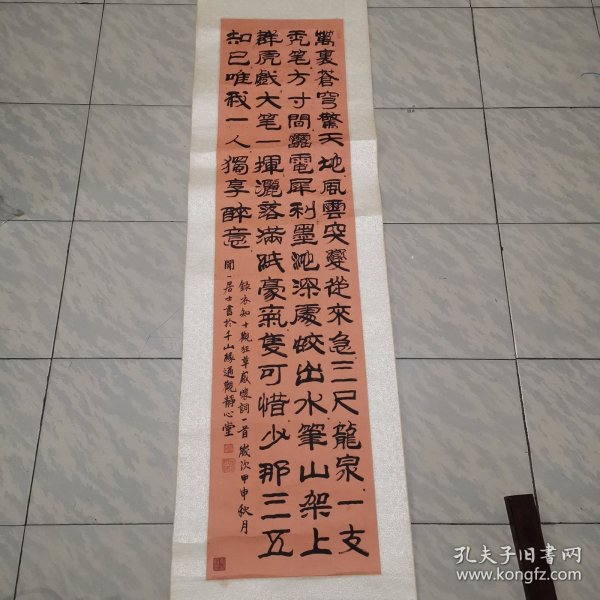 萬裏蒼穹驚天地風雲突變從來急三尺龍泉一支
禿笔方寸間靈電犀利墨池深處蛟出水筆山架上
群虎戲大笔一揮灑落滿紙豪氣隻可惜少那三五
知己唯我一人獨享醉意
錄衣知士觀狂草感懷詞一首歲次甲申秋月
閒一居士書於千山緣通觀靜心堂
孔夫子旧书网
www.kongfz.com